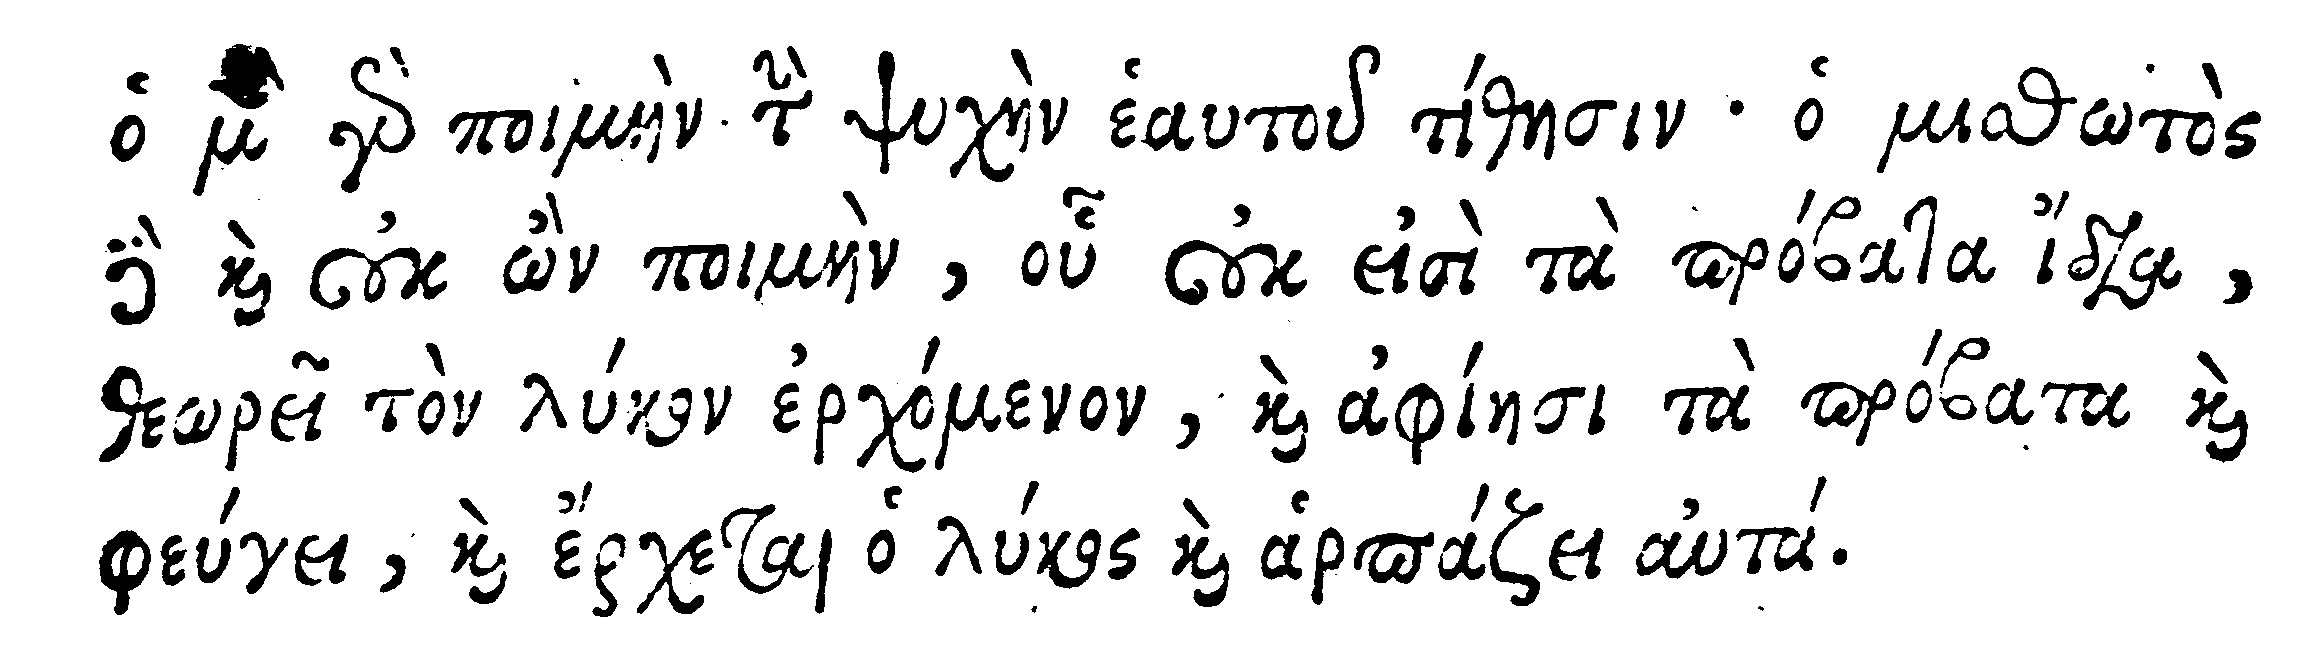 ὁ μὲν γὰρ ποιμὴν τὴν ψυχὴν ἑαυτοῦ τίθησιν · ὁ μισθωτὸς
δὲ καὶ οὐκ ὢν ποιμὴν, οὗ οὐκ εἰσὶ τὰ πρόβατα ἴδια,
θεωρεῖ τὸν λύκον ἐρχόμενον, καὶ ἀφίησι τὰ πρόβατα καὶ
φεύγει, καὶ ἔρχεται ὁ λύκος καὶ ἁρπάζει αὐτά.